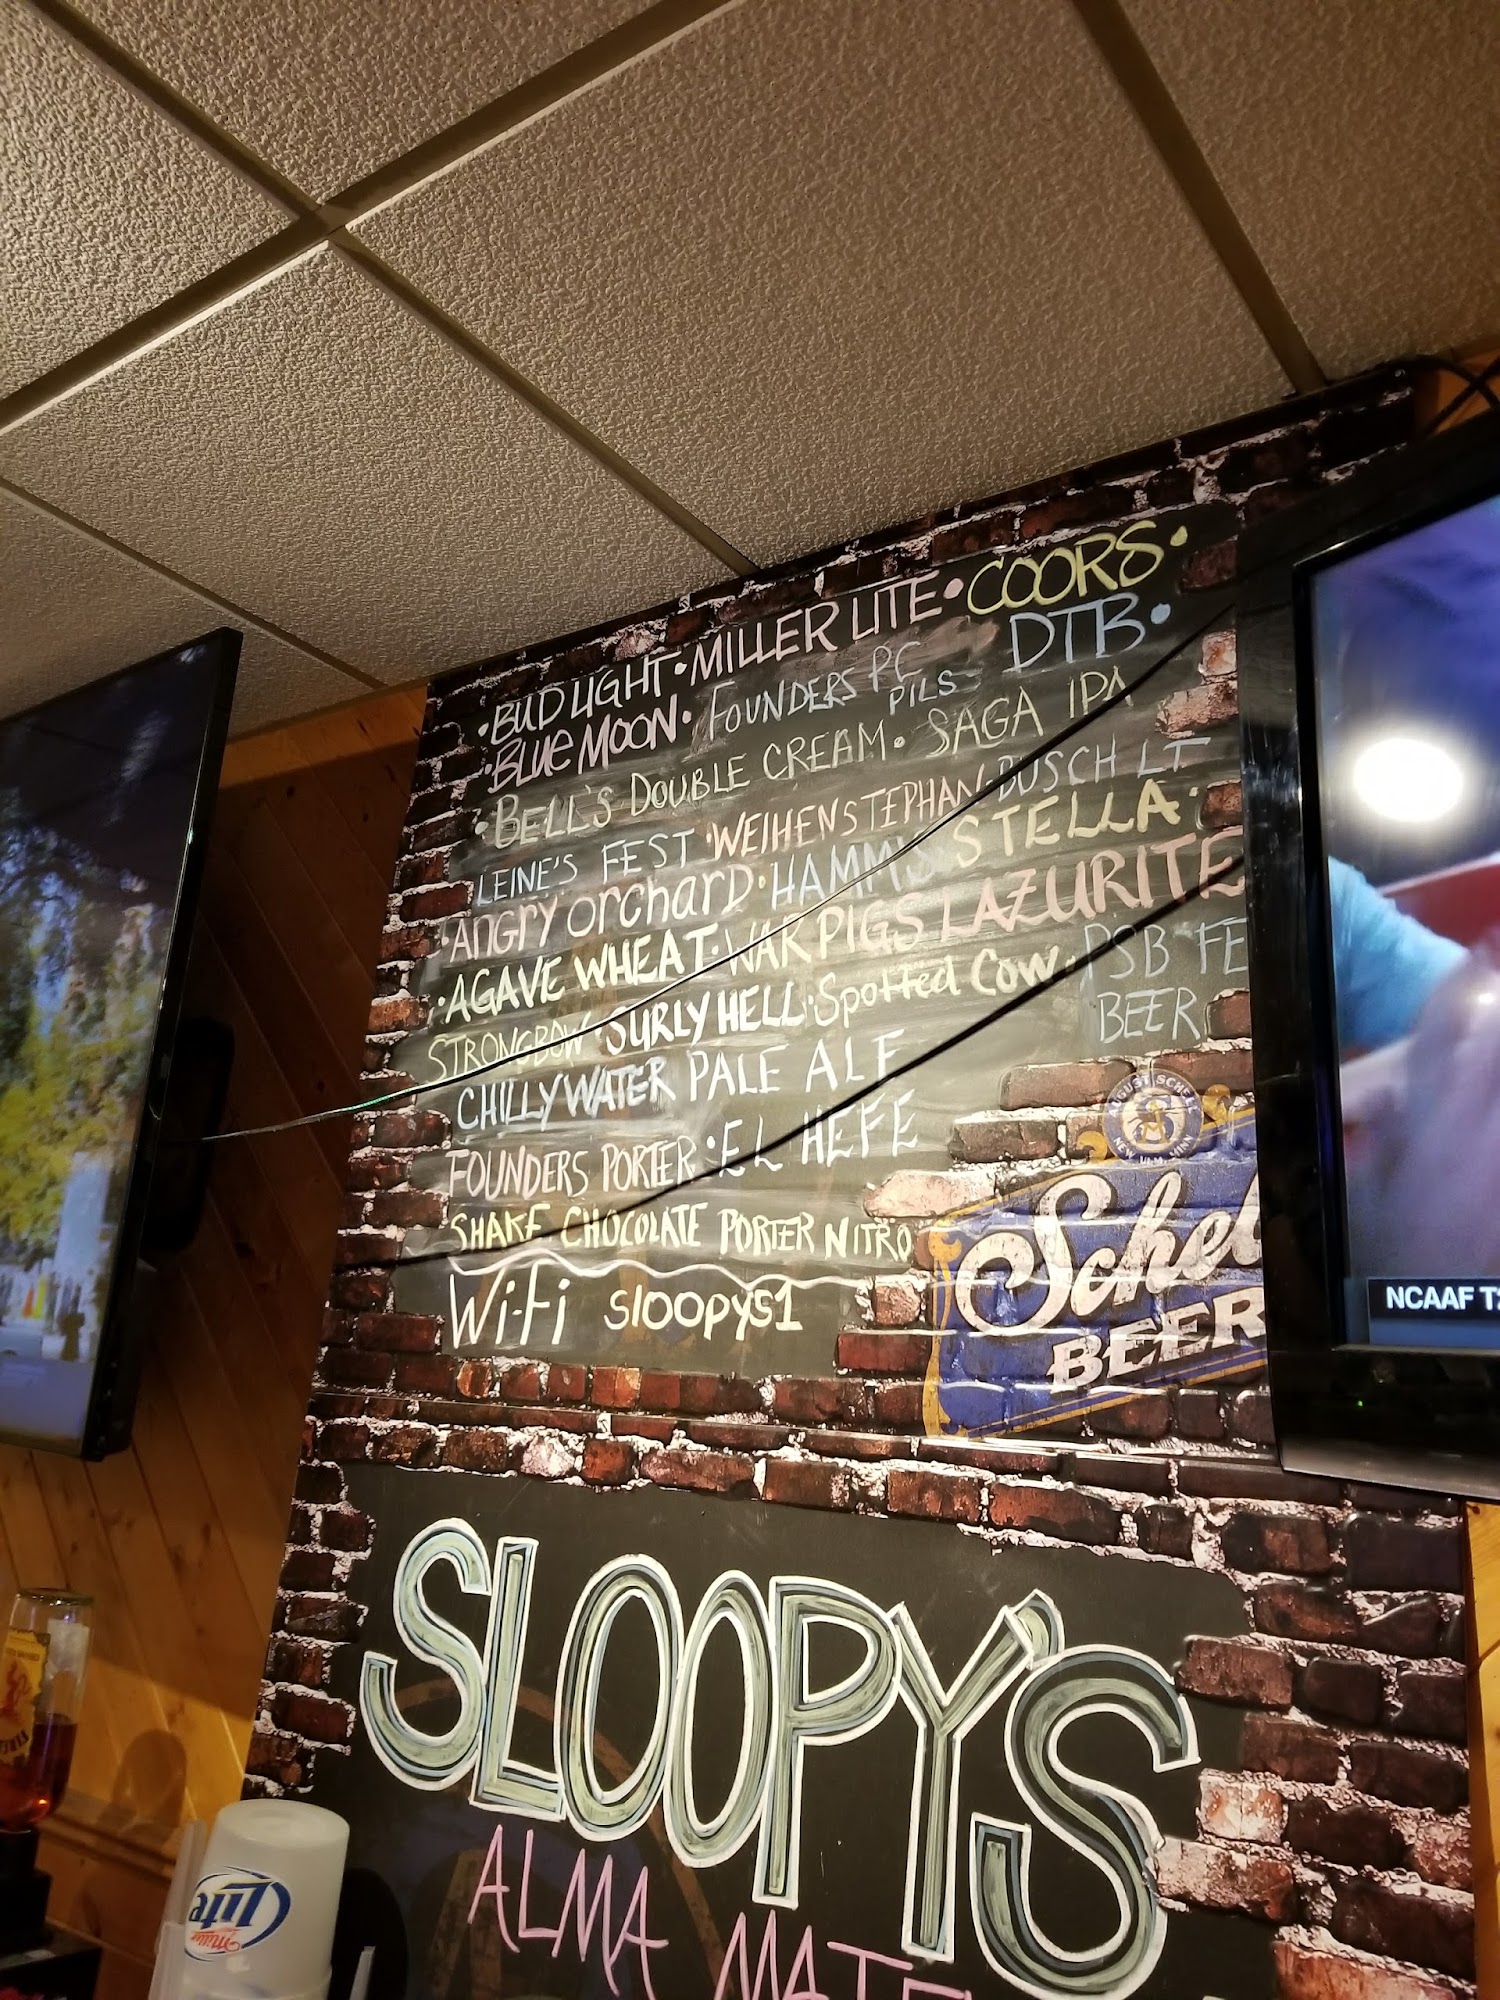 •BUD LIGHT•MILLER LITE•COORS•
•BLUE MOON•FOUNDERS PC PILS DTB•
•BELL'S DOUBLE CREAM•SAGA IPA
LEINE'S FEST•WEIHENSTEPHAN•BUSCH LT
•ANGRY ORCHARD•HAMM'S STELLA•
•AGAVE WHEAT•WARPIGS LAZURITE
STRONGBOW•SURLY HELL•Spotted Cow•PSB FE
BEER
CHILLYWATER PALE ALE
FOUNDERS PORTER•EL HEFE
SHAKE CHOCOLATE PORTER NITRO
Wi-Fi sloopys1
AUGUST SCHELL
NEW ULM, MINN
Schel
BEER
NCAAF
SLOOPY'S
ALMA MATE
Miller
Lite